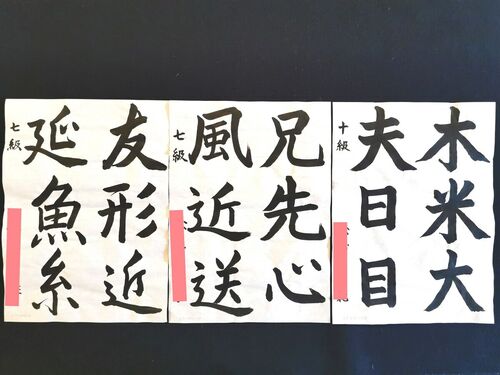 木米大
夫日目
十級
兄先心
風近送
七級
友形近
延魚糸
七級